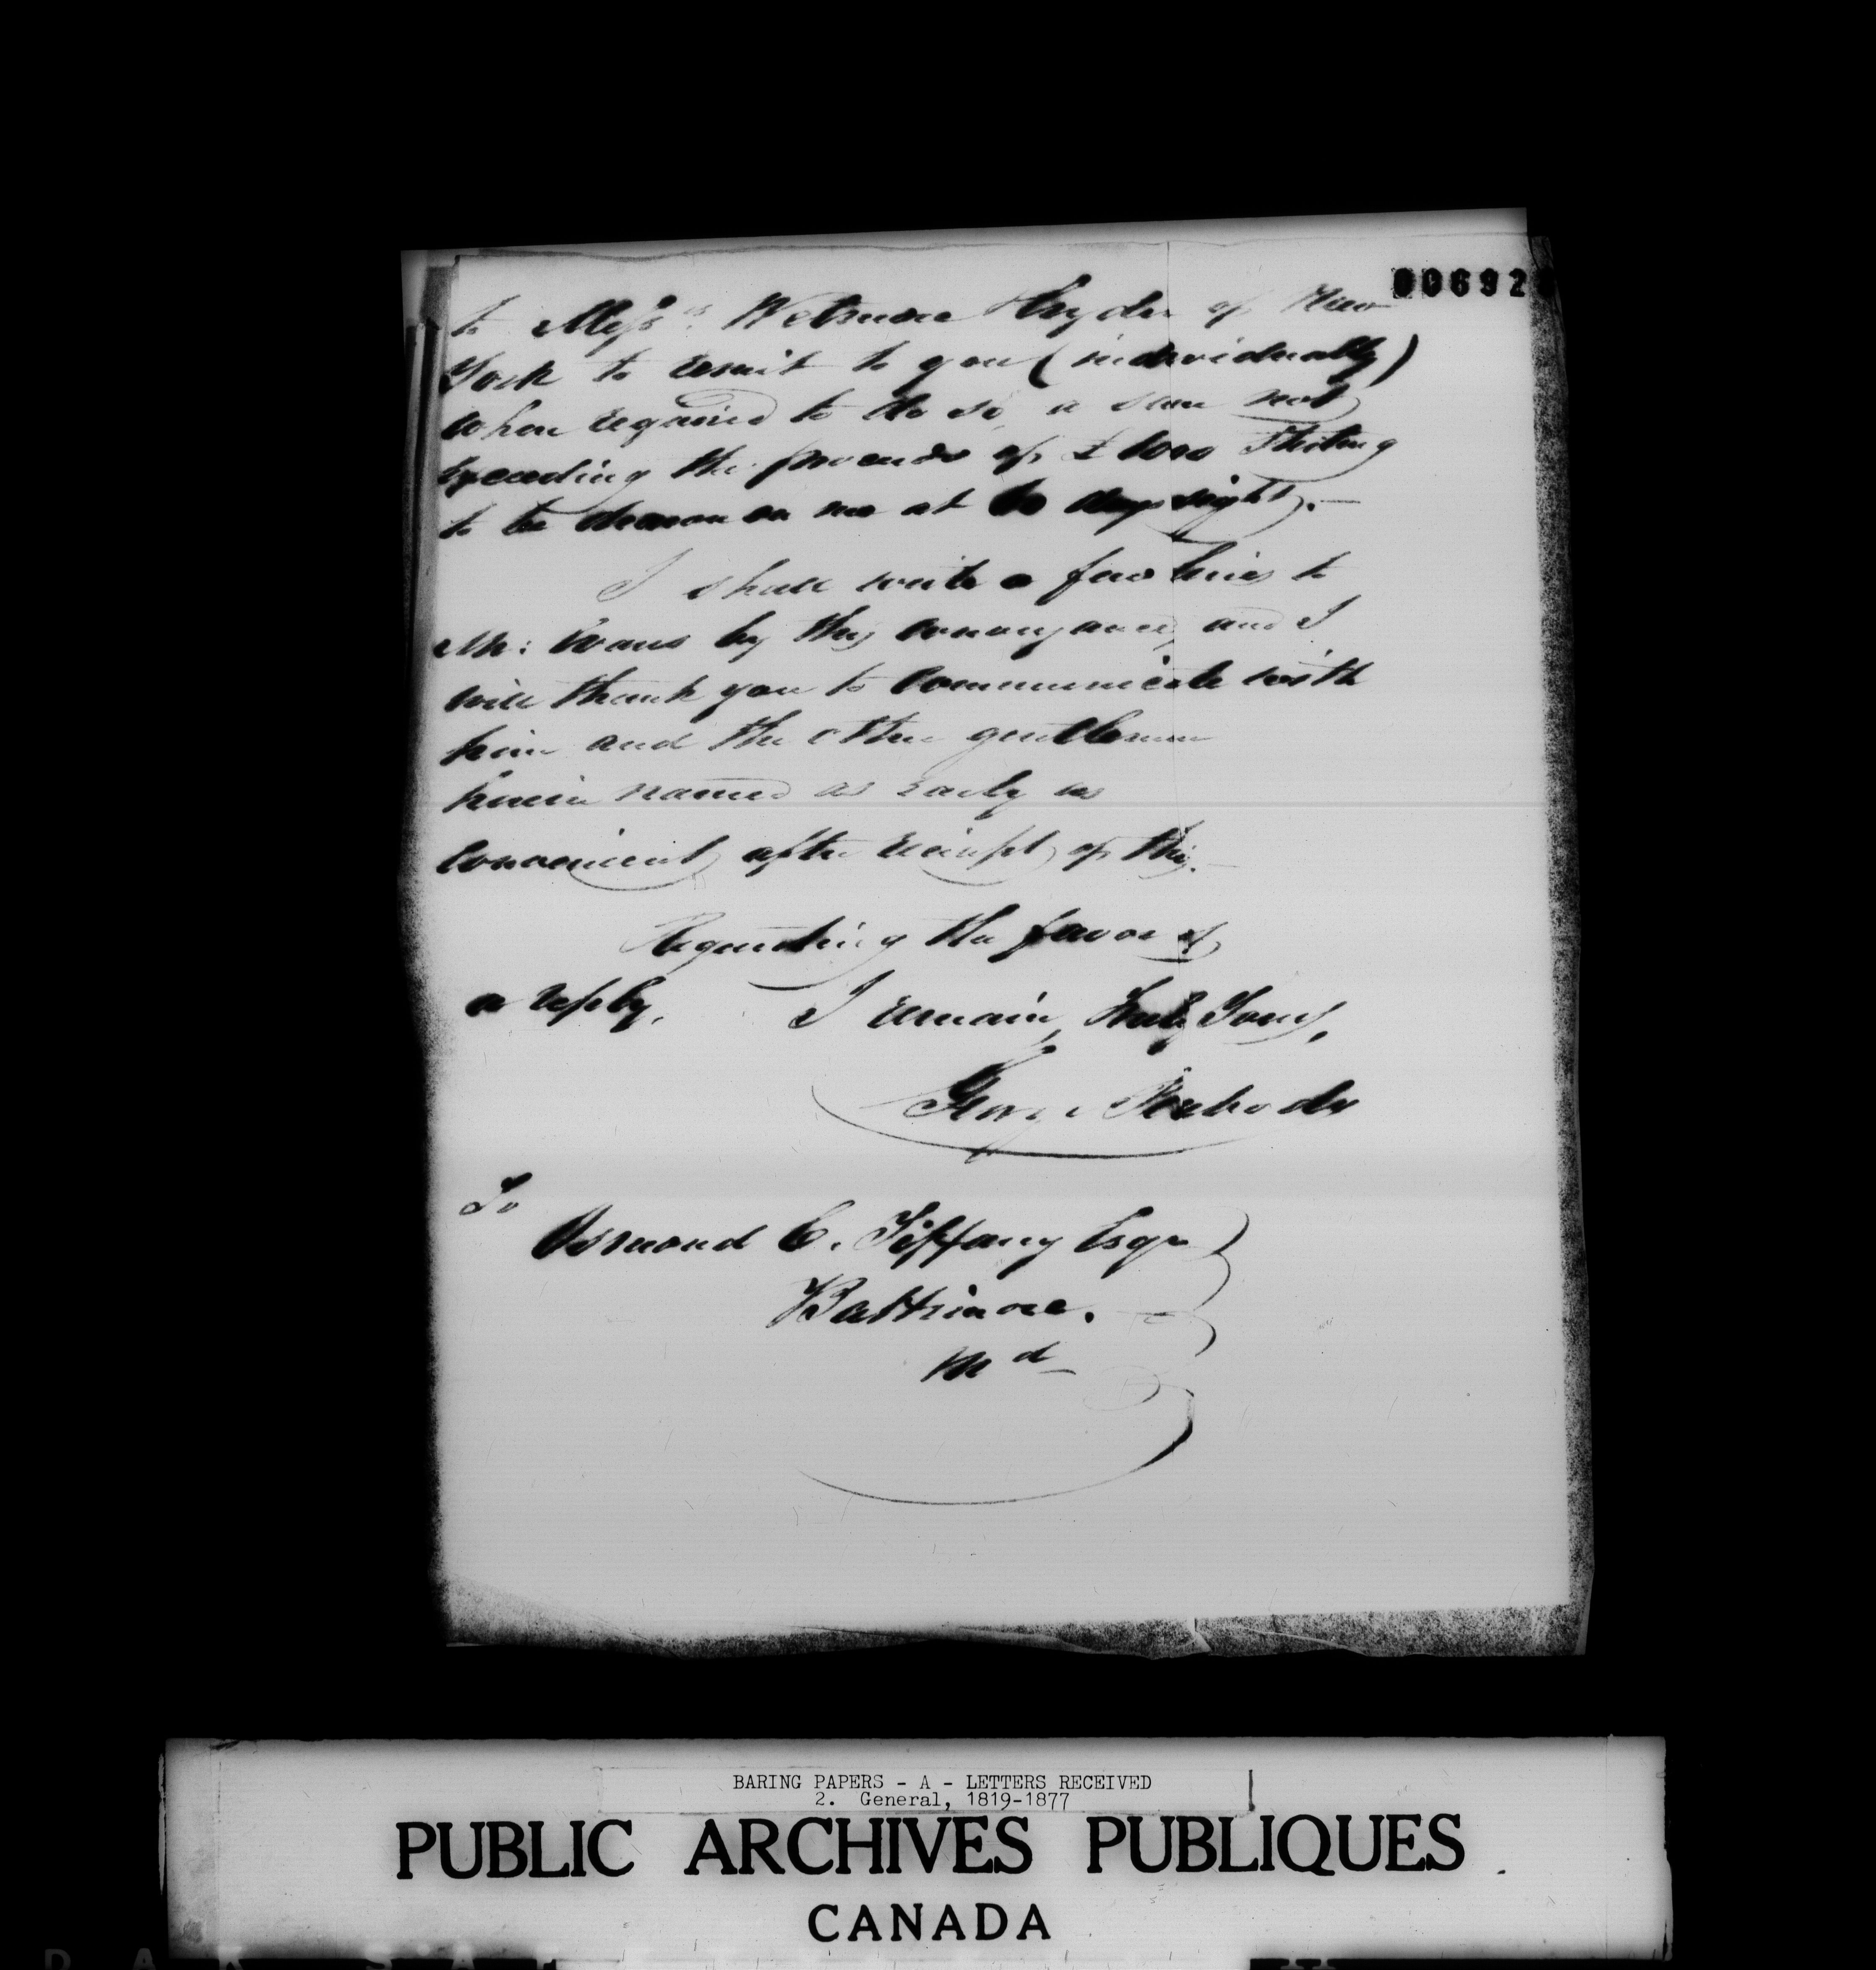 00692
to Mess.rs Wetmore Cryder of New
York to remit to you (individually)
when required to do so, a sum not
exceeding the proceeds of £1000 Sterling
to be drawn on me at 60 days sight.—
I shall write a few lines to
Mr: Evans by this conveyance, and I
will thank you to communicate with
him and the other gentlemen
herein named as early as
convenient after receipt of this.
Requesting the favor of
a reply, I remain, Truly Yours,
George Peabody
To
Osmond C. Tiffany Esqr
Baltimore.
Md
BARING PAPERS - A - LETTERS RECEIVED
2. General, 1819-1877
PUBLIC ARCHIVES PUBLIQUES
CANADA